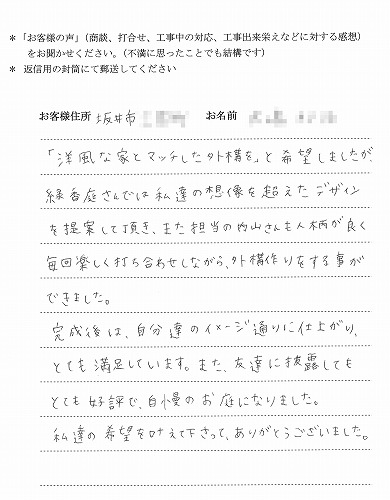 ＊「お客様の声」（商談、打合せ、工事中の対応、工事出来栄えなどに対する感想）
をお聞かせください。（不満に思ったことでも結構です）
＊ 返信用の封筒にて郵送してください
お客様住所 坂井市 お名前
「洋風な家とマッチした外構を」と希望しましたが、
緑香庭さんでは私達の想像を超えたデザイン
を提案して頂き、また担当の内山さんも人柄が良く
毎回楽しく打ち合わせしながら、外構作りをする事が
できました。
完成後は、自分達のイメージ通りに仕上がり、
とても満足しています。また、友達に披露しても
とても好評で、自慢のお庭になりました。
私達の希望を叶えて下さって、ありがとうございました。